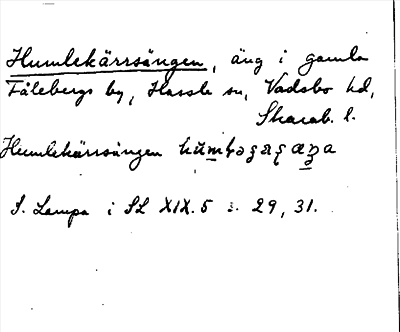 Humlekärrsängen, äng i gamla
Fälebergs by, Hassle sn, Vadsbo hd,
Skarab. l.
Humlekärrsängen
S. Lampa i SL XIX. 5 s. 29, 31.